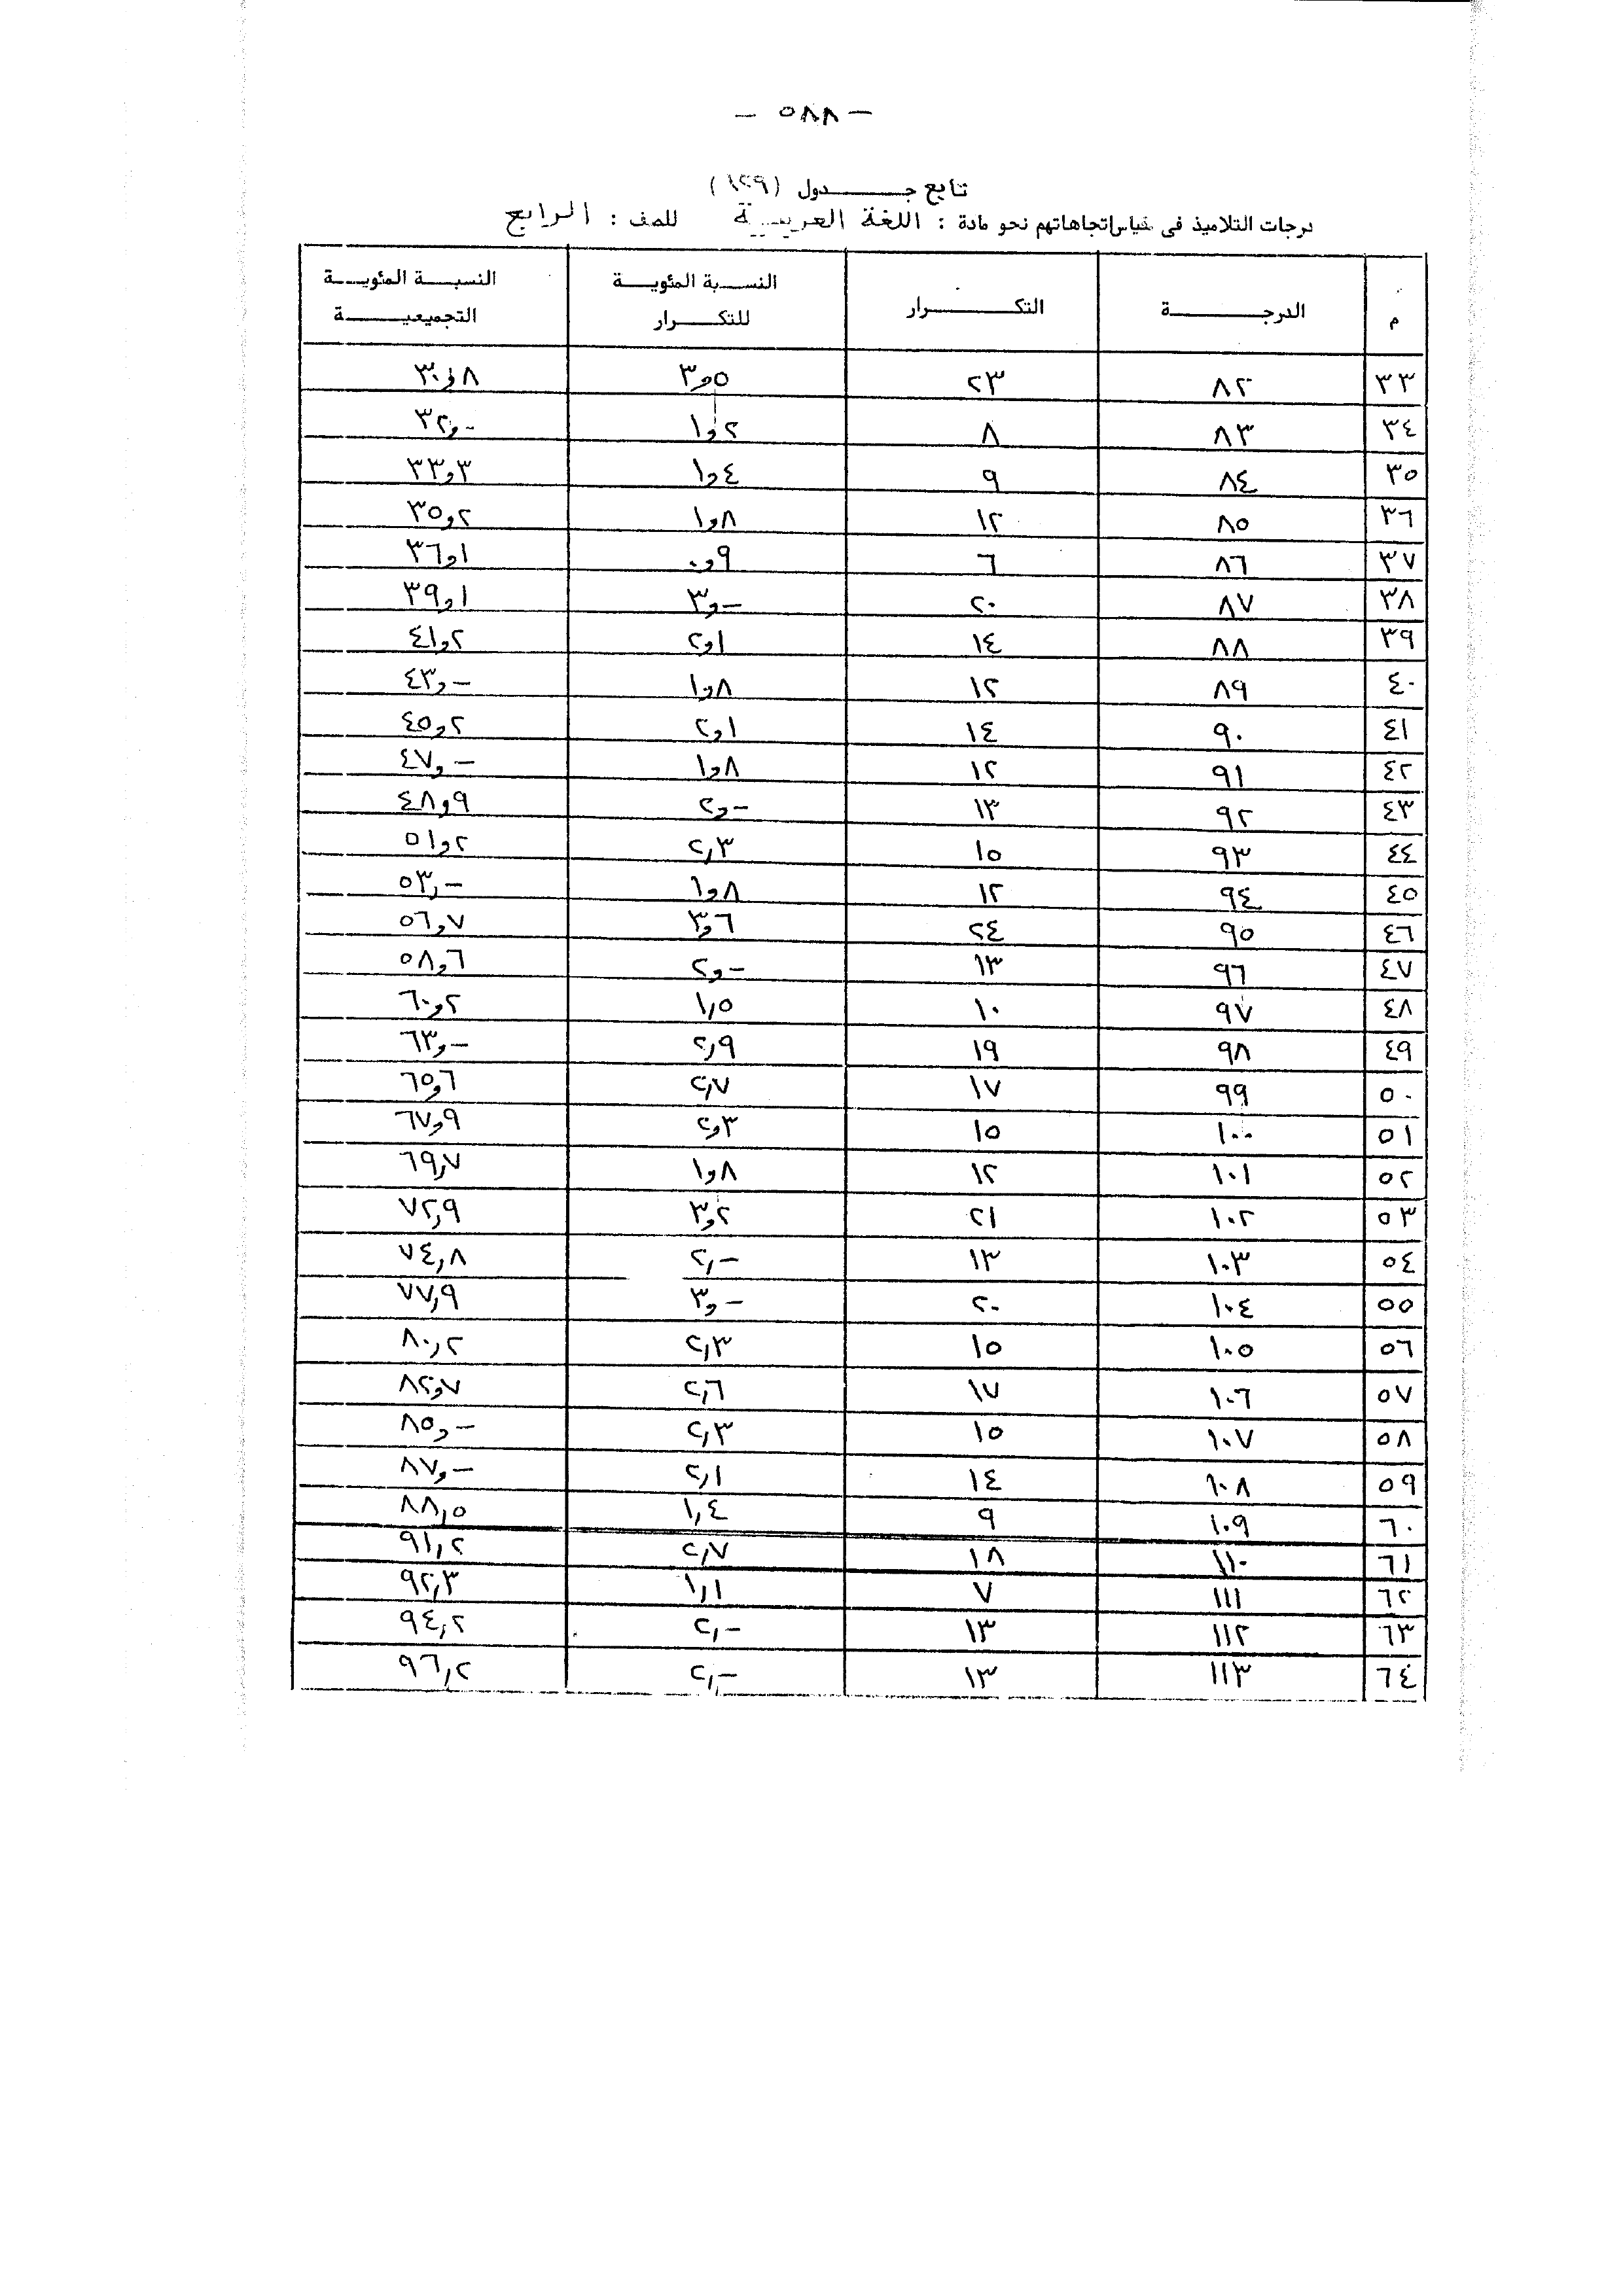 — ٥٨٨ —
تابع جدول (١٢٩)
درجات التلاميذ فى قياس اتجاهاتهم نحو مادة : اللغة العربية للصف : الرابع
م الدرجة التكرار النسبة المئوية للتكرار النسبة المئوية التجميعية
٣٣ ٨٢ ٢٣ ٣و٥ ٣٠و٨
٣٤ ٨٣ ٨ ١و٢ ٣٢و-
٣٥ ٨٤ ٩ ١و٤ ٣٣و٣
٣٦ ٨٥ ١٢ ١و٨ ٣٥و٢
٣٧ ٨٦ ٦ ٠و٩ ٣٦و١
٣٨ ٨٧ ٢٠ ٣و- ٣٩و١
٣٩ ٨٨ ١٤ ٢و١ ٤١و٢
٤٠ ٨٩ ١٢ ١و٨ ٤٣و-
٤١ ٩٠ ١٤ ٢و١ ٤٥و٢
٤٢ ٩١ ١٢ ١و٨ ٤٧و-
٤٣ ٩٢ ١٣ ٢و- ٤٨و٩
٤٤ ٩٣ ١٥ ٢,٣ ٥١و٢
٤٥ ٩٤ ١٢ ١و٨ ٥٣,-
٤٦ ٩٥ ٢٤ ٣و٦ ٥٦و٧
٤٧ ٩٦ ١٣ ٢و- ٥٨و٦
٤٨ ٩٧ ١٠ ١,٥ ٦٠و٢
٤٩ ٩٨ ١٩ ٢,٩ ٦٣و-
٥٠ ٩٩ ١٧ ٢,٧ ٦٥و٦
٥١ ١٠٠ ١٥ ٢و٣ ٦٧و٩
٥٢ ١٠١ ١٢ ١و٨ ٦٩,٧
٥٣ ١٠٢ ٢١ ٣و٢ ٧٢,٩
٥٤ ١٠٣ ١٣ ٢,- ٧٤,٨
٥٥ ١٠٤ ٢٠ ٣و- ٧٧,٩
٥٦ ١٠٥ ١٥ ٢,٣ ٨٠,٢
٥٧ ١٠٦ ١٧ ٢,٦ ٨٢و٧
٥٨ ١٠٧ ١٥ ٢,٣ ٨٥و-
٥٩ ١٠٨ ١٤ ٢,١ ٨٧و-
٦٠ ١٠٩ ٩ ١,٤ ٨٨,٥
٦١ ١١٠ ١٨ ٢,٧ ٩١,٢
٦٢ ١١١ ٧ ١,١ ٩٢,٣
٦٣ ١١٢ ١٣ ٢,- ٩٤,٢
٦٤ ١١٣ ١٣ ٢,- ٩٦,٢